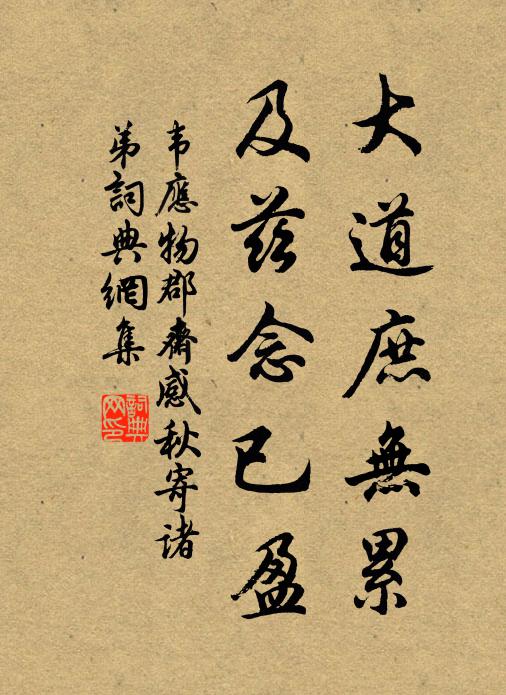 大道庶無累
及兹念已盈
韦應物郡齋感秋寄諸
弟詞典網集
詞典
网印